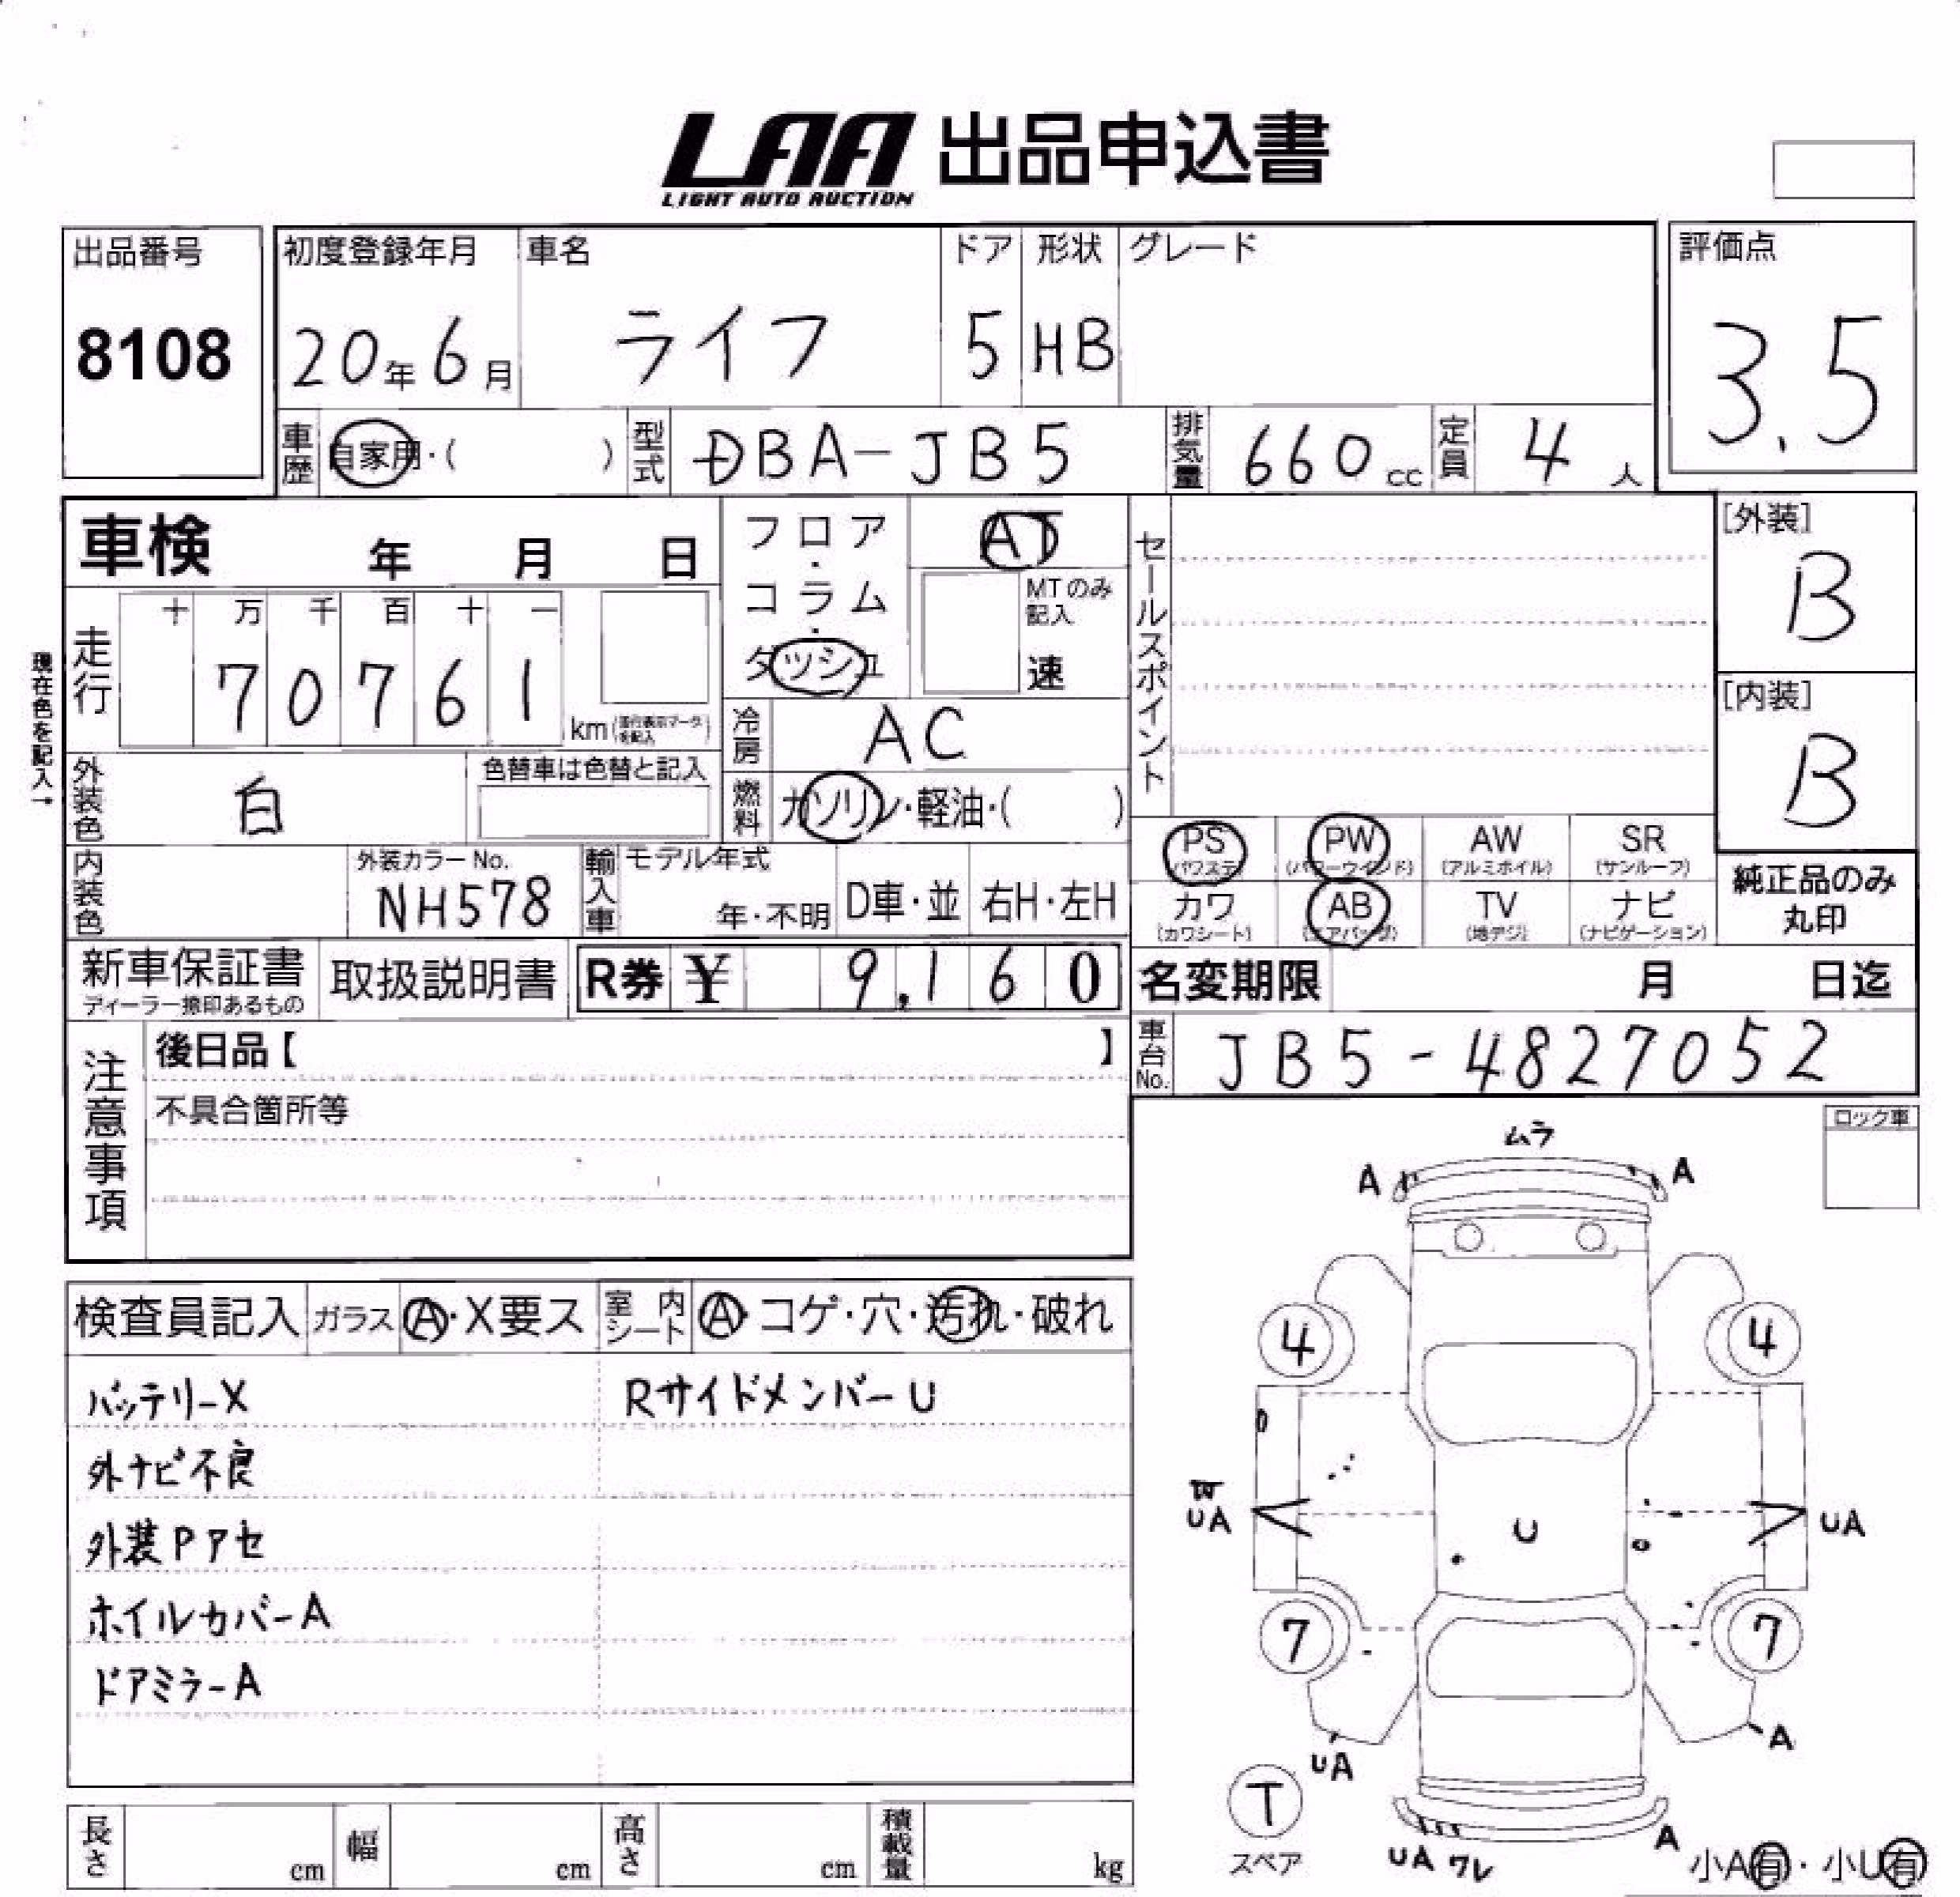 LAA 出品申込書
LIGHT AUTO AUCTION
出品番号 初度登録年月 車名 ドア 形状 グレード 評価点
8108 20年6月 ライフ 5 HB 3.5
車歴 自家用・( ) 型式 DBA-JB5 排気量 660cc 定員 4人
車検 年 月 日
フロア・コラム・ダッシュ
AT
MTのみ記入
速
セールスポイント
[外装]
B
[内装]
B
現在色を記入→
走行 十 万 千 百 十 一
7 0 7 6 1 km(走行表示マークを記入)
冷房 AC
燃料 ガソリン・軽油・( )
外装色 白 色替車は色替と記入
内装色 外装カラーNo. NH578
輸入車 モデル年式 年・不明 D車・並 右H・左H
PS(パワステ) PW(パワーウインド) AW(アルミホイル) SR(サンルーフ)
カワ(カワシート) AB(エアバッグ) TV(地デジ) ナビ(ナビゲーション)
純正品のみ
丸印
新車保証書 取扱説明書 R券 ¥ 9,160
ディーラー捺印あるもの
名変期限 月 日迄
車台No. JB5-4827052
注意事項
後日品【 】
不具合箇所等
ロック車
検査員記入 ガラス A・X要ス 室内シート A・コゲ・穴・汚れ・破れ
バッテリーX RサイドメンバーU
外ナビ不良
外装Pアセ
ホイルカバーA
ドアミラーA
ムラ
A A
4 4
UA U UA
7 7
UA A
T
スペア
UA ワレ A
小A有・小U有
長さ cm 幅 cm 高さ cm 積載量 kg